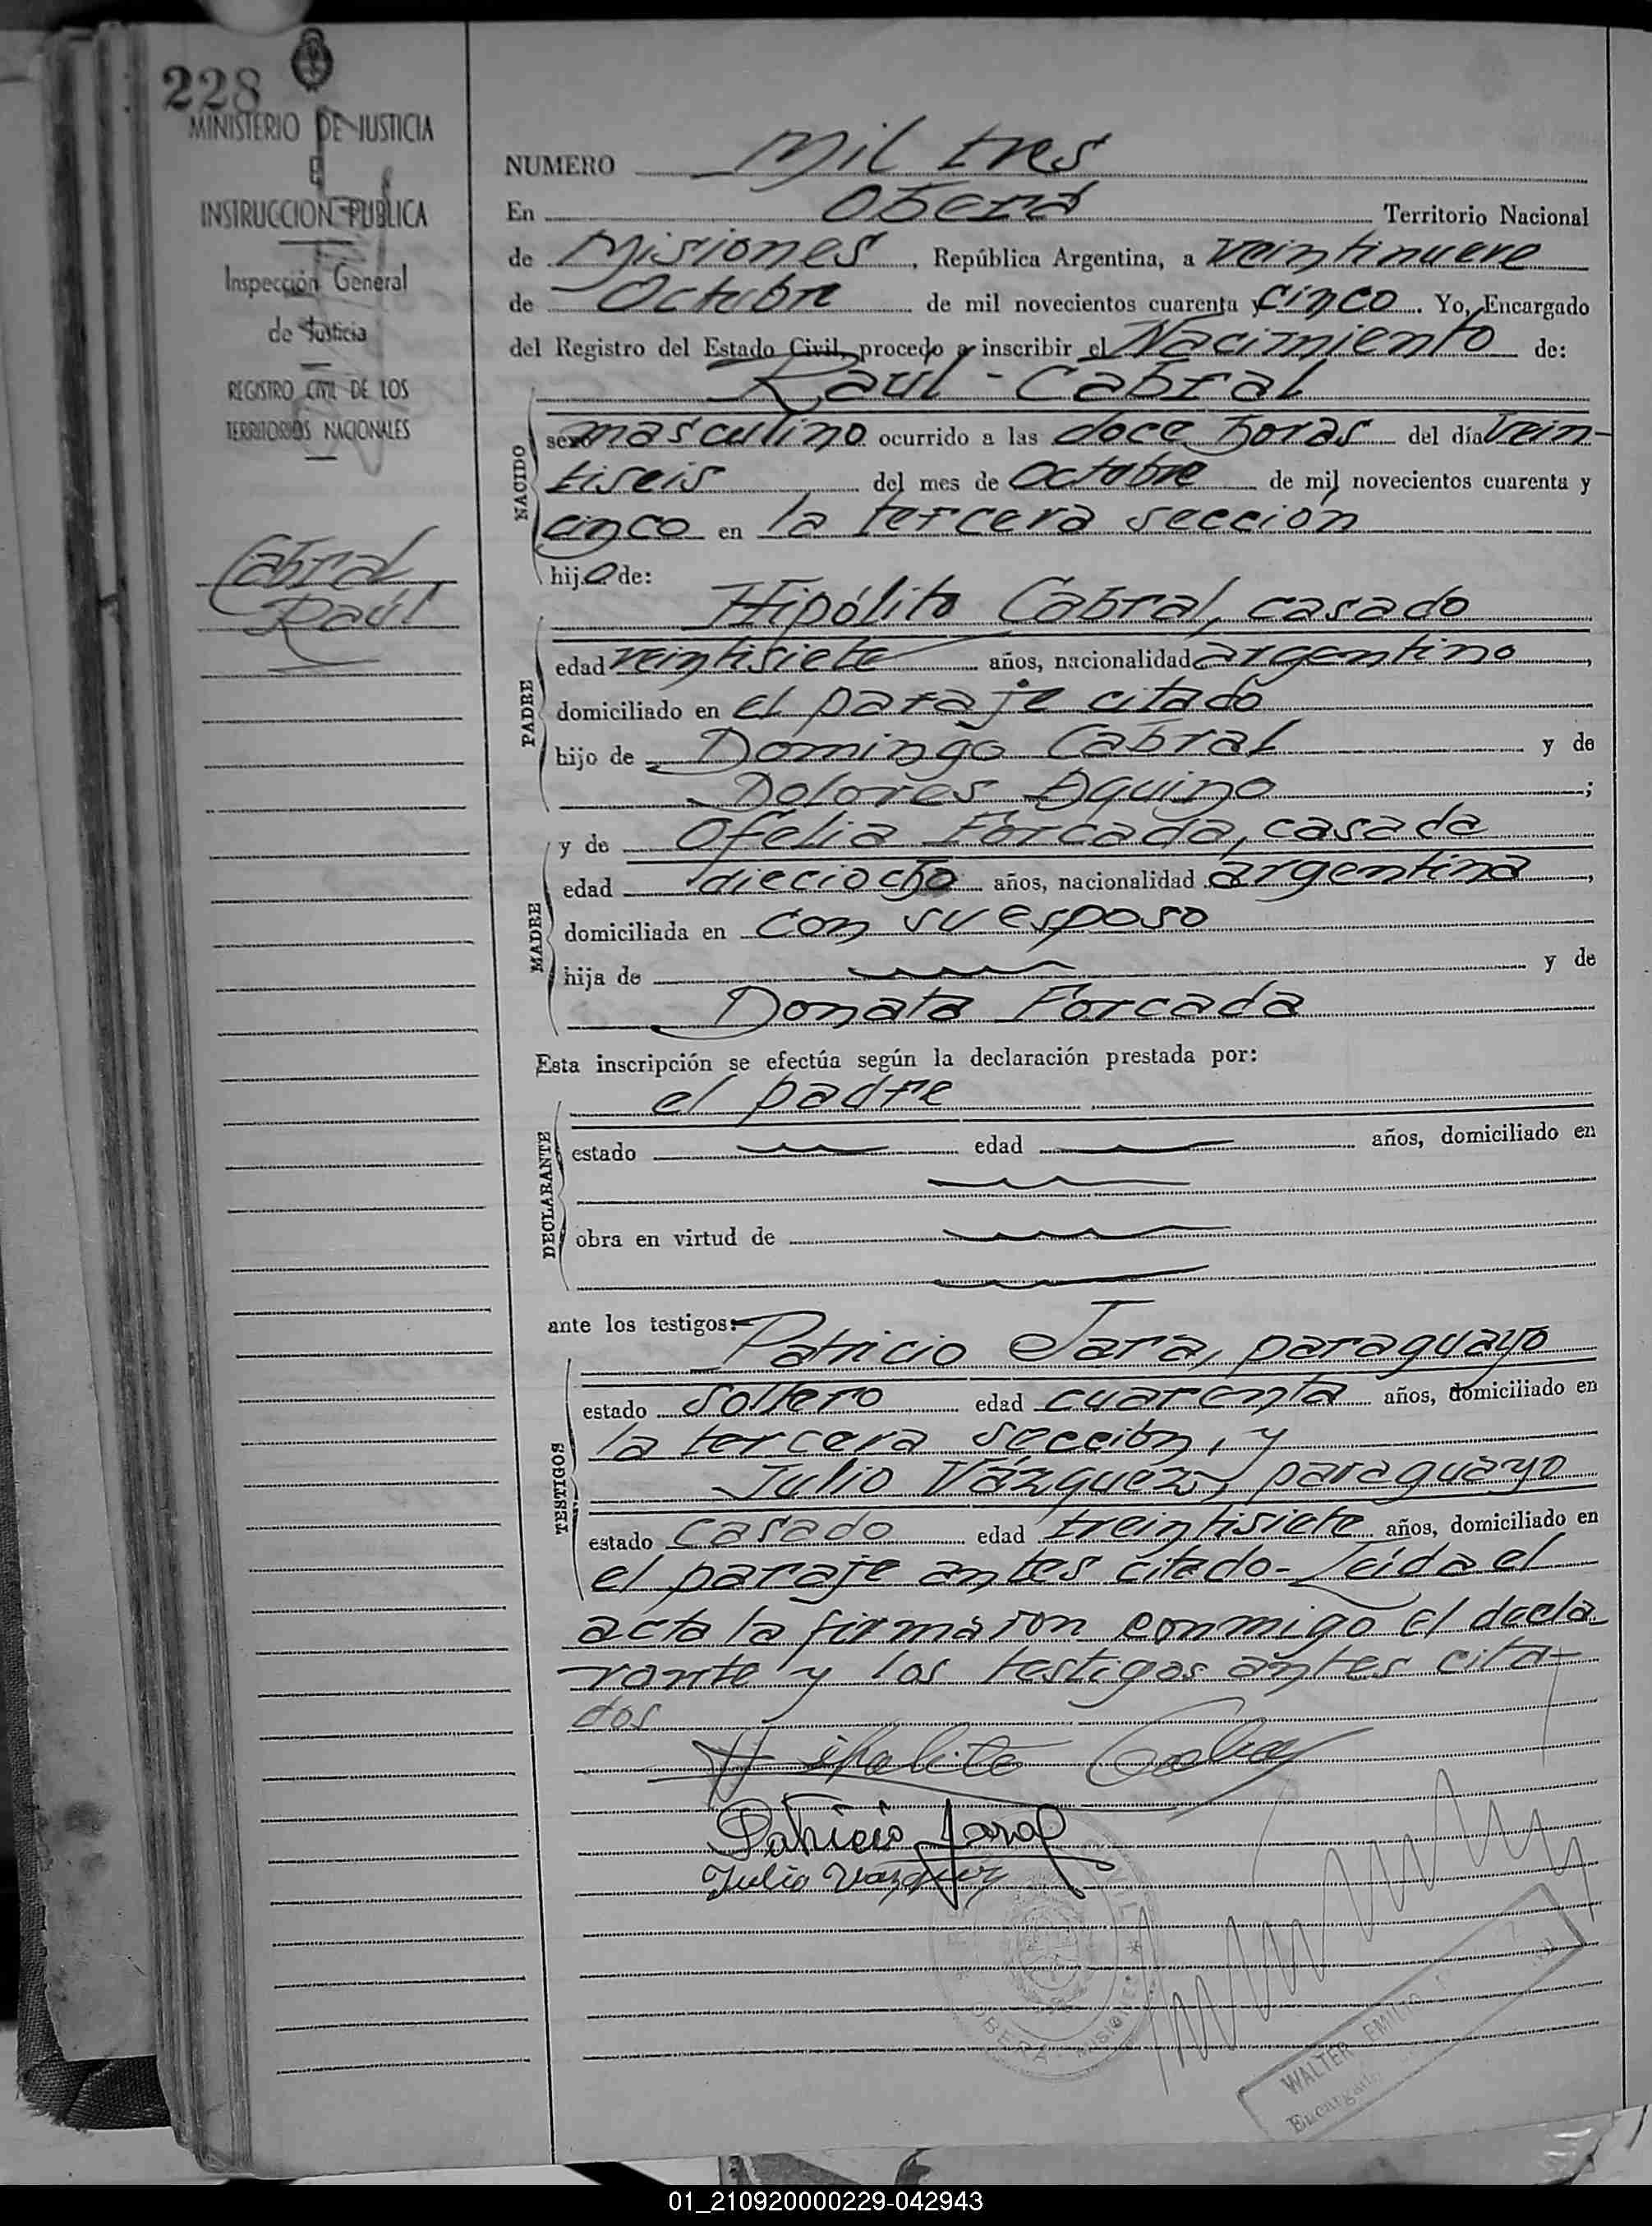 228
MINISTERIO DE JUSTICIA
E
INSTRUCCION PUBLICA
Inspección General
de Justicia
REGISTRO CIVIL DE LOS
TERRITORIOS NACIONALES
Cabral
Raúl
NUMERO Mil tres
En Oberá Territorio Nacional
de Misiones, República Argentina, a veintinueve
de Octubre de mil novecientos cuarenta y cinco. Yo, Encargado
del Registro del Estado Civil, procedo a inscribir el Nacimiento de:
Raúl - Cabral
NACIDO
sexo masculino ocurrido a las doce horas del día vein-
tiseis del mes de Octubre de mil novecientos cuarenta y
cinco en la tercera sección
hijo de:
Hipólito Cabral, casado
PADRE
edad veintisiete años, nacionalidad argentino,
domiciliado en el paraje citado
hijo de Domingo Cabral y de
Dolores Aquino;
y de Ofelia Forcada, casada
MADRE
edad dieciocho años, nacionalidad argentina,
domiciliada en con su esposo
hija de y de
Donata Forcada
Esta inscripción se efectúa según la declaración prestada por:
el padre
DECLARANTE
estado edad años, domiciliado en
obra en virtud de
ante los testigos:
Patricio Jara, paraguayo
TESTIGOS
estado soltero edad cuarenta años, domiciliado en
la tercera sección, y
Julio Vázquez, paraguayo
estado casado edad treintisiete años, domiciliado en
el paraje antes citado- Leida el
acta la firmaron conmigo el decla-
rante y los testigos antes cita-
dos
Hipolito Cabral
Patricio Jara
Julio Vazquez
CIVIL * OBERA - MISIONES
WALTER EMILIO
Encargado
01_210920000229-042943